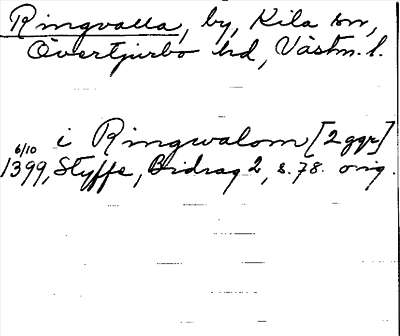 Ringvalla, by, Kila sn,
Övertjurbo hd, Västm. l.
i Ringwalom [2 ggr]
6/10
1399, Styffe, Bidrag 2, s. 78. orig.